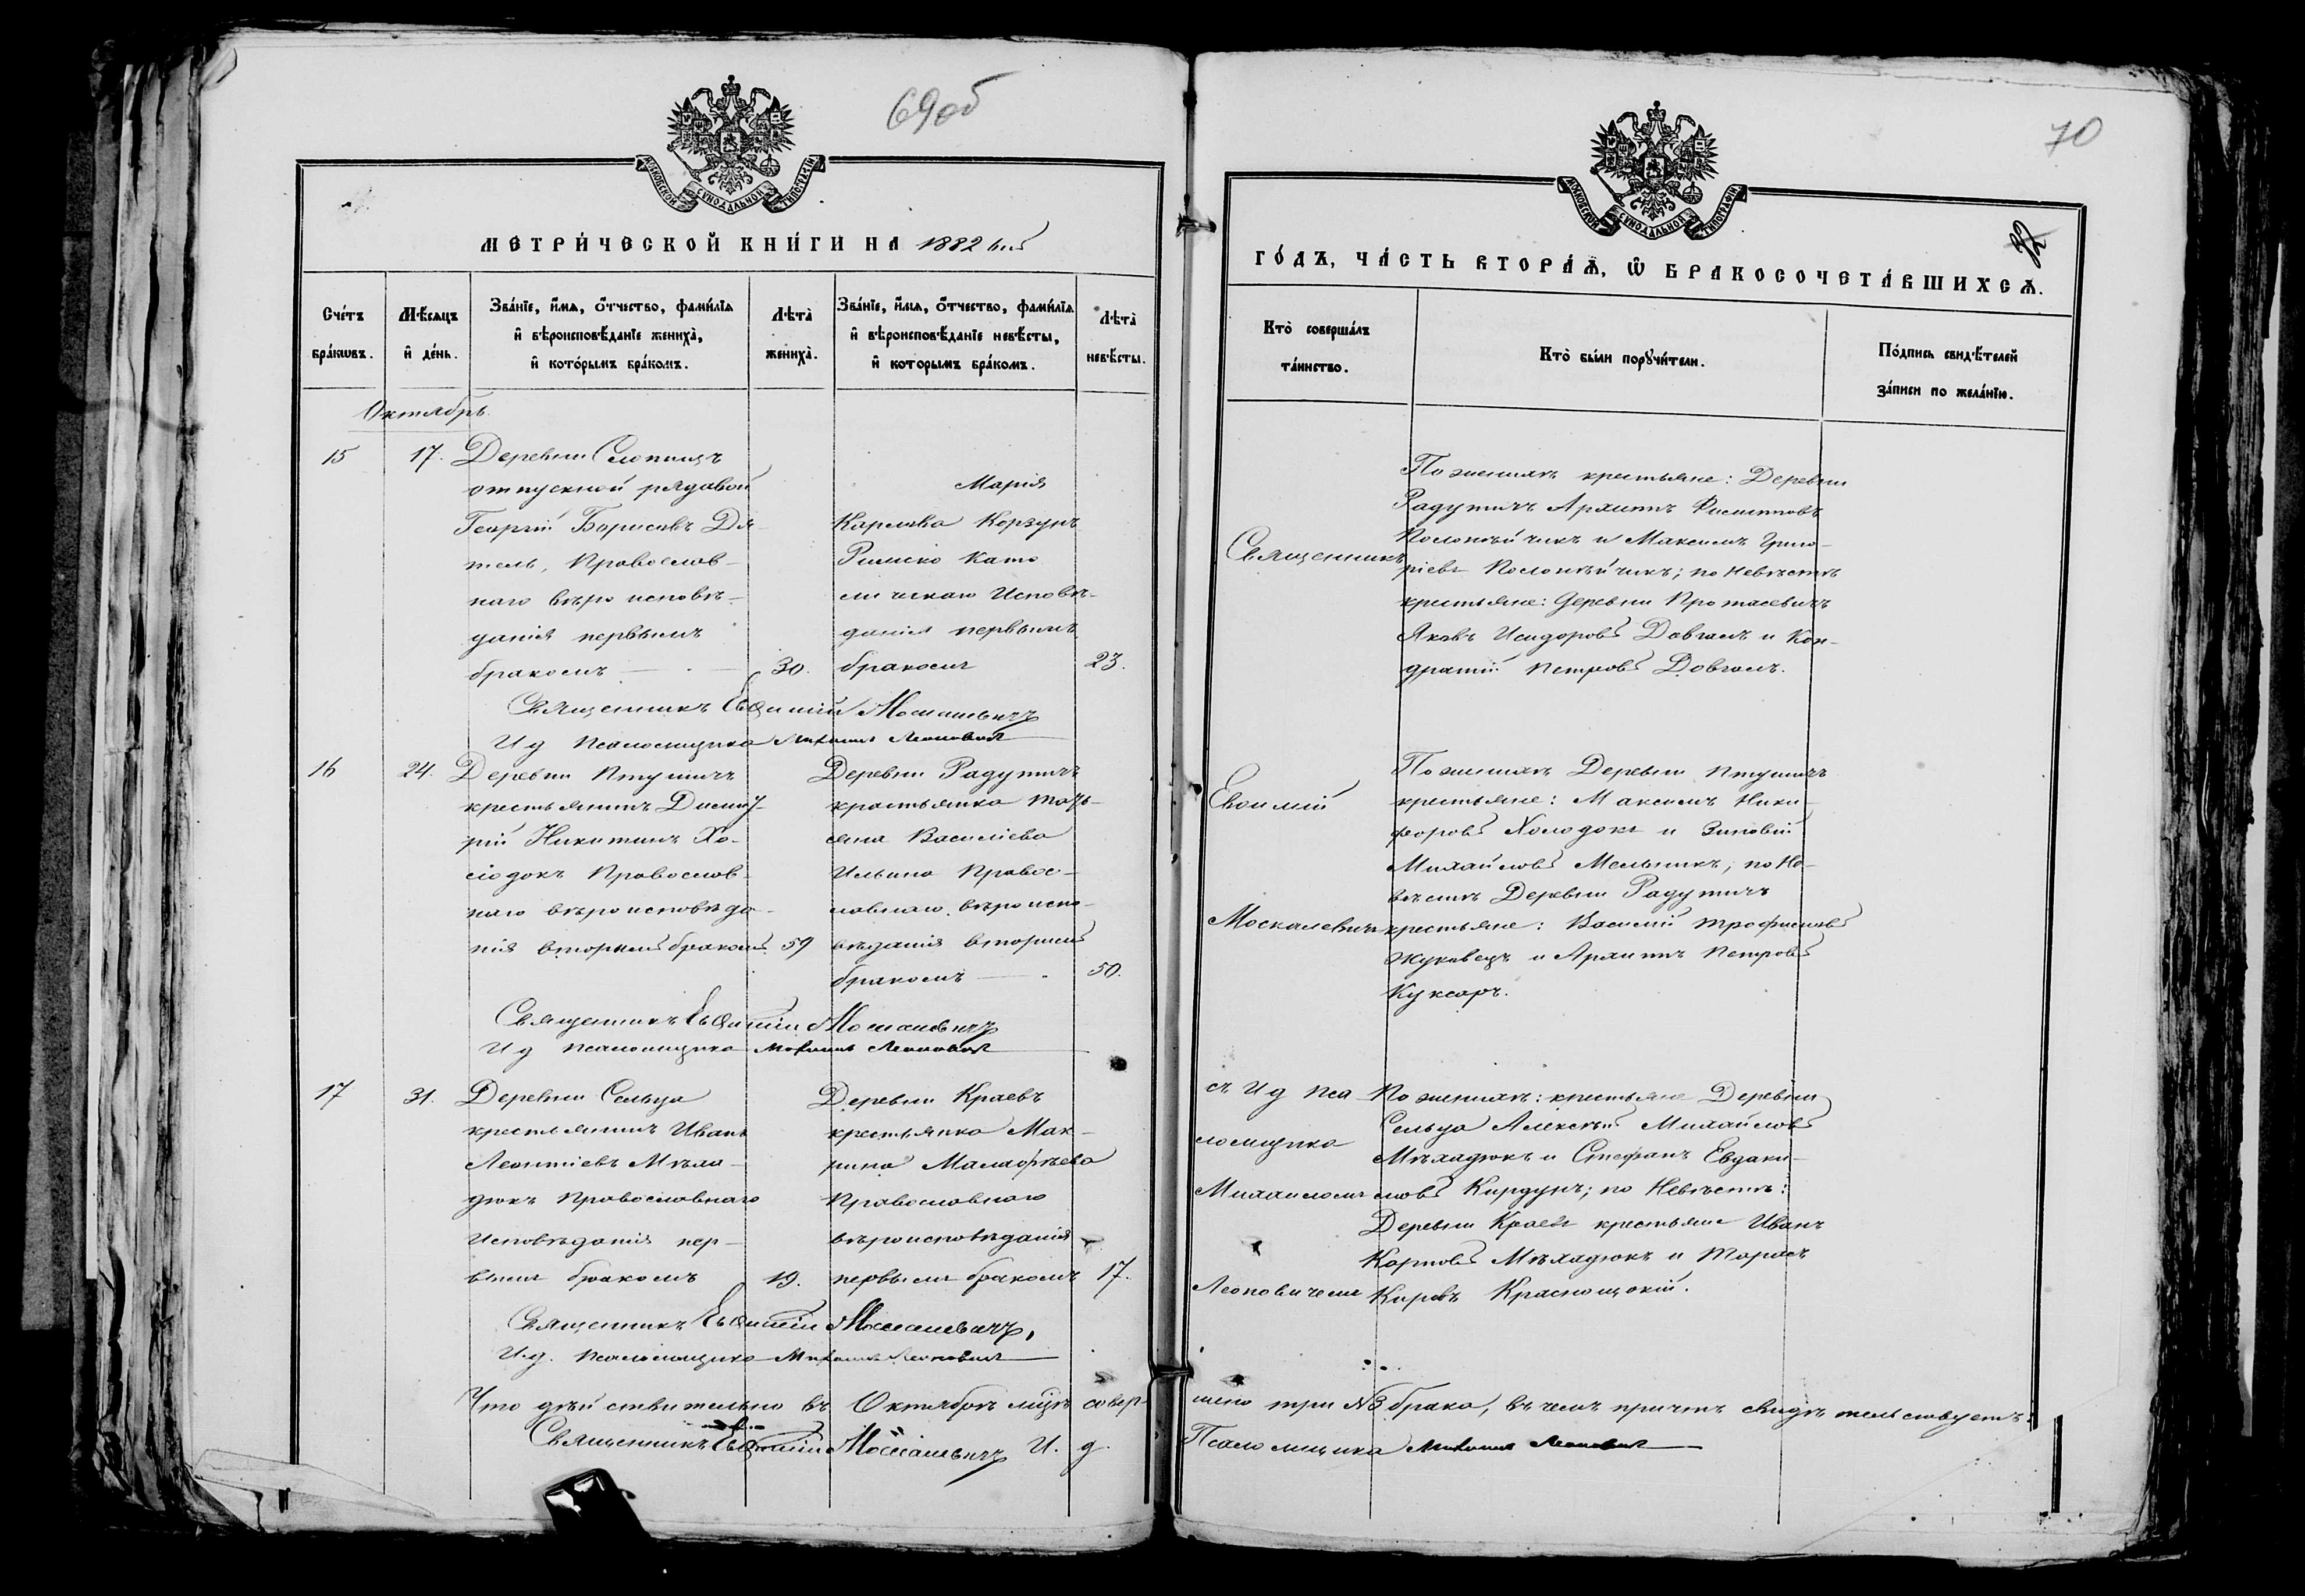 69об
МОСКОВСКОЙ СѴНОДАЛЬНОЙ ТИПОГРАФІИ
МЕТРИ́ЧЕСКОЙ КНИ́ГИ НА 1882 й
Сче́тъ бра́кωвъ.
Мѣ́сяцъ и҆ де́нь.
Зва́нїе, и҆́мѧ, ѻ҆́тчество, фами́лїѧ и҆ вѣроисповѣ́данїе жениха̀, и҆ кото́рымъ бра́комъ.
Лѣ́та̀ жениха̀.
Зва́нїе, и҆́мѧ, ѻ҆́тчество, фами́лїѧ и҆ вѣроисповѣ́данїе невѣ́сты, и҆ кото́рымъ бра́комъ.
Лѣ́та̀ невѣ́сты.
Октябрь.
15
17.
Деревни
отпускной рядовой
Георгій Борисовъ Дя-
тель, Православ-
наго вѣроисповѣ-
данія первымъ
бракомъ
30.
Марія
Карлова Корзунъ
Римско Като
лическаго Исповѣ-
данія первымъ
бракомъ
23.
Священникъ Евѳимій Москалевичъ
И д Псаломщика Михаилъ Леоновичъ
16
24.
Деревни Птушичъ
крестьянинъ Димит-
рій Никитинъ Хо-
лодокъ Православ-
наго вѣроисповѣда-
нія вторымъ бракомъ
59
Деревни Радутичъ
крестьянка Тать-
яна Василіева
Ильина Правос-
лавнаго вѣроиспо-
вѣданія вторымъ
бракомъ
50.
Священникъ Евѳимій Москалевичъ
И д Псаломщика Михаилъ Леоновичъ
17
31.
Деревни Сельца
крестьянинъ Иванъ
Леонтіевъ Мѣха-
дюкъ Православнаго
Исповѣданія пер-
вымъ бракомъ
19.
Деревни Краевъ
крестьянка Мак-
рина
Православнаго
вѣроисповѣданія
первымъ бракомъ
17.
Священникъ Евѳимій Москалевичъ,
И.д. Псаломщика Михаилъ Леоновичъ
Что дѣйствительно въ Октябрѣ мцѣ совер-
Священникъ Евѳимій Москалевичъ И. д.
70
МОСКОВСКОЙ СѴНОДАЛЬНОЙ ТИПОГРАФІИ
ГО́ДЪ, ЧА́СТЬ ВТОРА́Ѧ, Ѽ БРАКОСОЧЕТА́ВШИХСѦ.
Кто̀ соверша́лъ та́инство.
Кто̀ бы́ли порꙋчи́тели.
По́дпись свидѣ́телей за́писи по жела́нїю.
Священникъ
Евѳимій
Москалевичъ
съ И д Пса
ломщика
Михаиломъ
Леоновичемъ
По женихѣ крестьяне: Деревни
Радутичъ Архипъ Филиповъ
Полонѣйчикъ и Максимъ Григо-
ріевъ Полонѣйчикъ; по Невѣстѣ
крестьяне: деревни Протасевичъ
Яковъ Исидоровъ Довгалъ и Кон-
дратій Петровъ Довгалъ.
По женихѣ Деревни Птушичъ
крестьяне: Максимъ Ники-
форовъ Холодокъ и Зиновій
Михайловъ Мельникъ; по Не-
вѣстѣ Деревни Радутичъ
крестьяне: Василій Трофимовъ
Жуковецъ и Архипъ Петровъ
Куксаръ.
По женихѣ: крестьяне Деревни
Сельца Алексѣй Михайловъ
Мѣхадюкъ и Стефанъ Евдоки-
мовъ Кирдунъ; по Невѣстѣ:
Деревни Краевъ крестьяне Иванъ
Карповъ Мѣхадюкъ и Тарасъ
Кировъ Краснощокій.
шено три №3 брака, въ чемъ причтъ свидѣтельствуетъ:
Псаломщика Михаилъ Леоновичъ